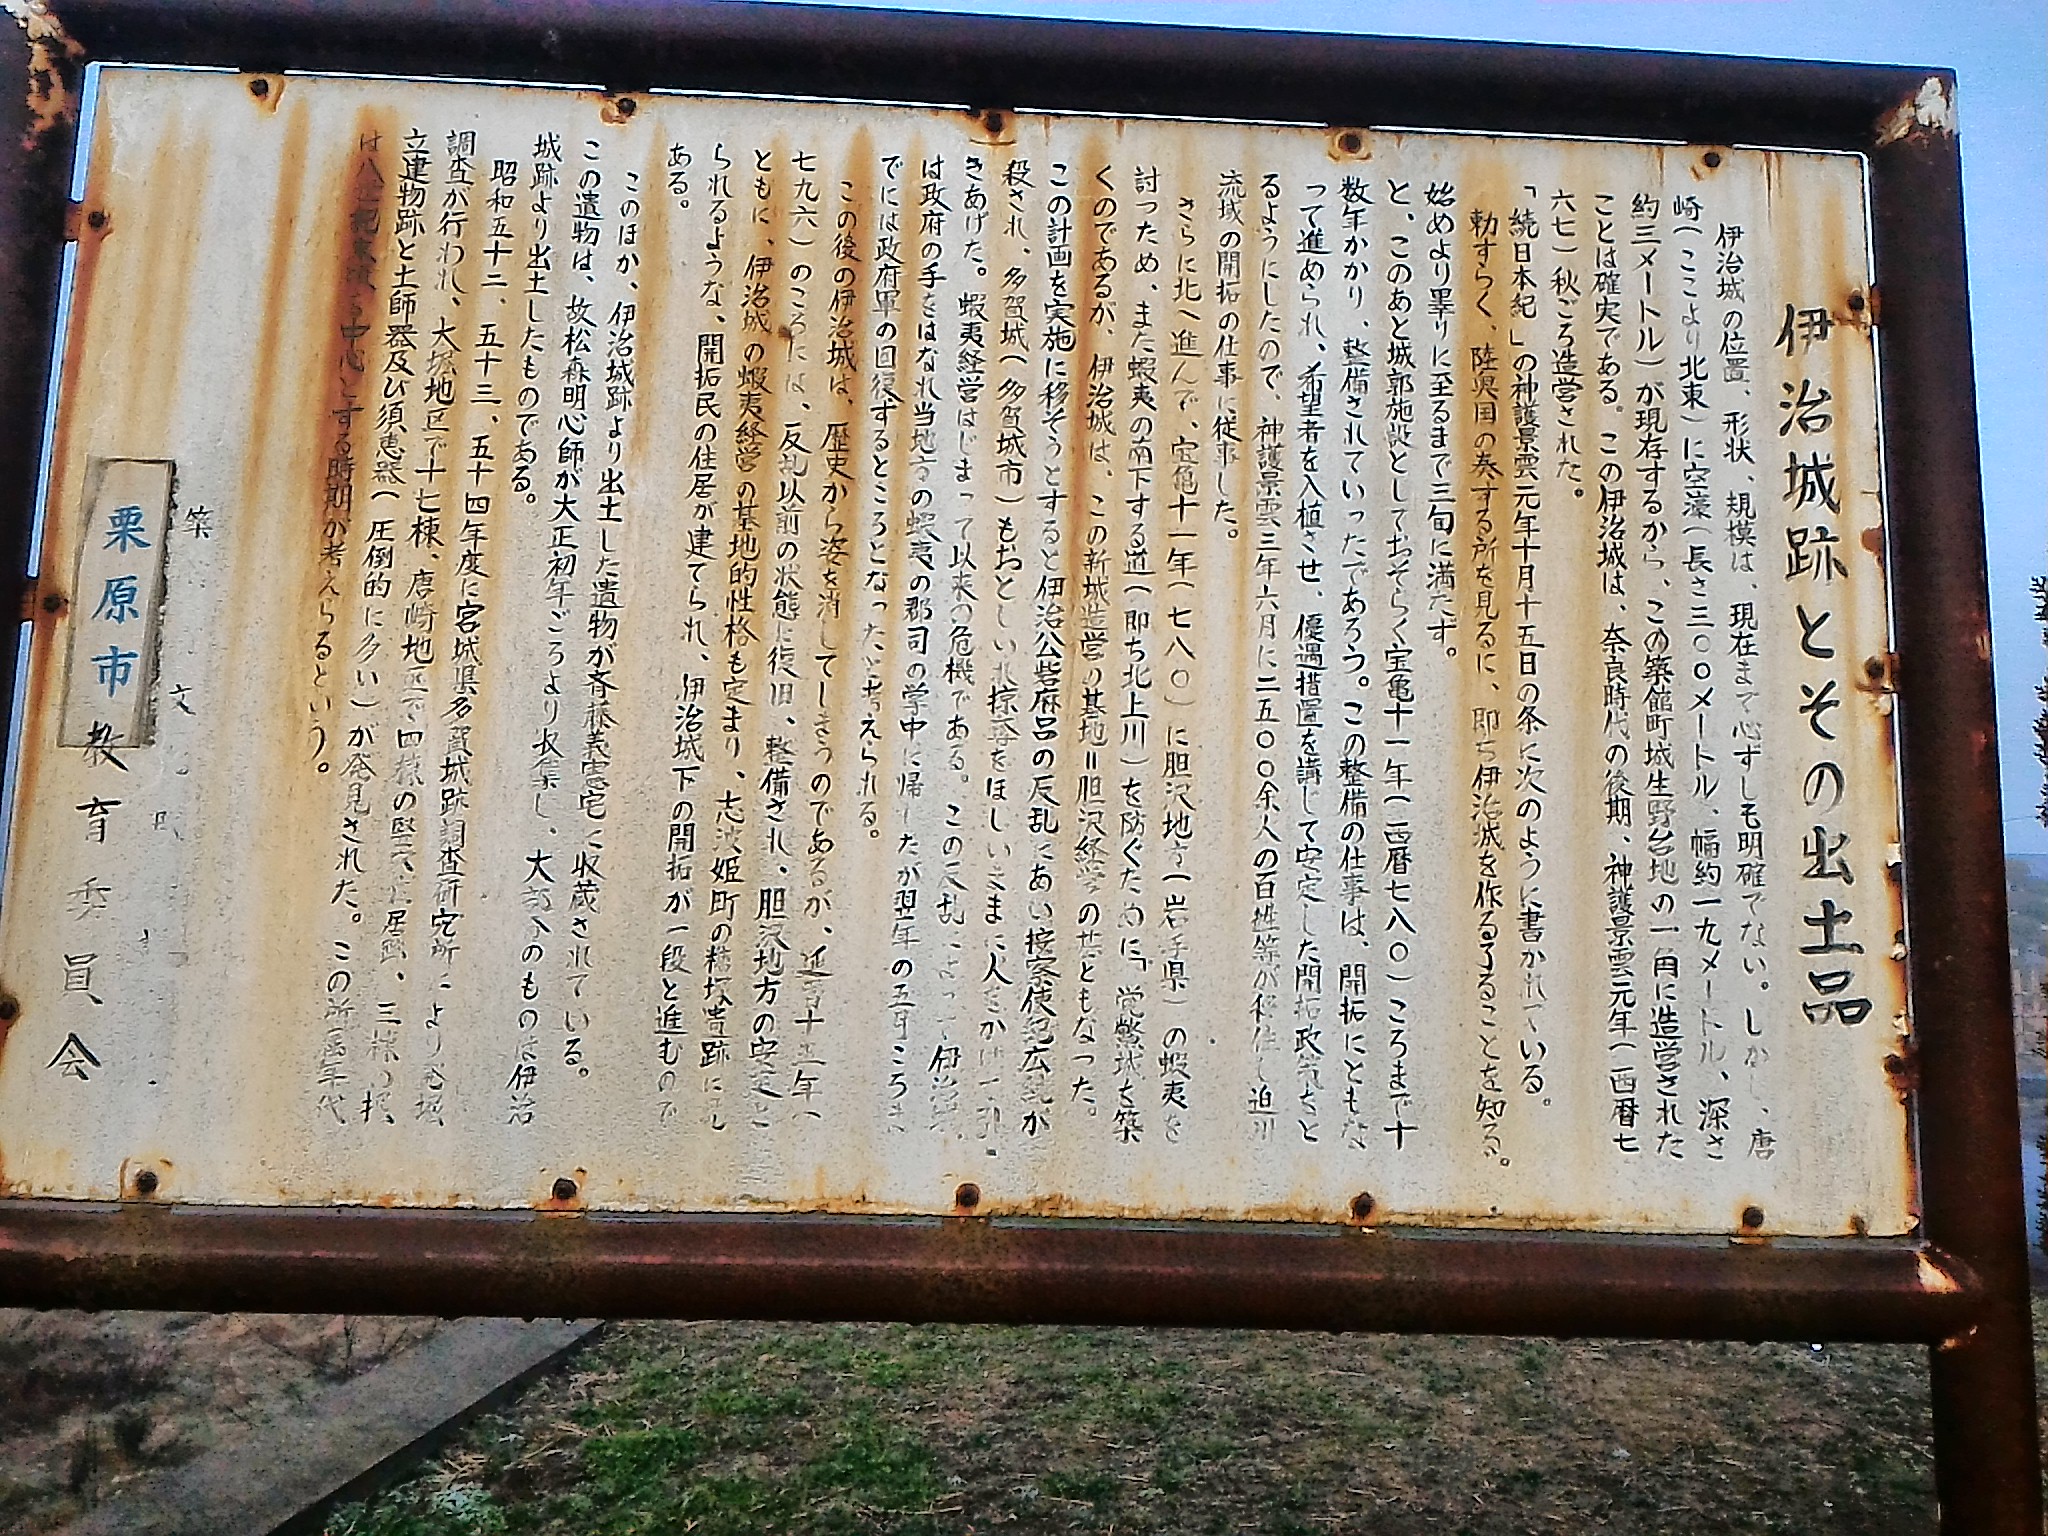 伊治城跡とその出土品
伊治城の位置、形状、規模は、現在まで必ずしも明確でない。しかし、唐
崎(ここより北東)に空濠(長さ三〇〇メートル、幅約一九メートル、深さ
約三メートル)が現存するから、この築館町城生野台地の一角に造営された
ことは確実である。この伊治城は、奈良時代の後期、神護景雲元年(西暦七
六七)秋ごろ造営された。
「続日本紀」の神護景雲元年十月十五日の条に次のように書かれている。
勅すらく、陸奥国の奏する所を見るに、即ち伊治城を作る了ることを知る。
始めより畢りに至るまで三旬に満たず。
と、このあと城郭施設としておそらく宝亀十一年(西暦七八〇)ころまで十
数年かかり、整備されていったであろう。この整備の仕事は、開拓にともな
って進められ、希望者を入植させ、優遇措置を講じて安定した開拓政策をと
るようにしたので、神護景雲三年六月に二五〇〇余人の百姓等が移住し迫川
流域の開拓の仕事に従事した。
さらに北へ進んで、宝亀十一年(七八〇)に胆沢地方(岩手県)の蝦夷を
討つため、また蝦夷の南下する道(即ち北上川)を防ぐために「覚鱉城を築
くのであるが、伊治城は、この新城造営の基地=胆沢経営の基ともなった。
この計画を実施に移そうとすると伊治公呰麻呂の反乱にあい按察使紀広純が
殺され、多賀城(多賀城市)もおとしい れ掠奪をほしいままに人をかけ
きあげた。蝦夷経営はじまって以来の危機である。この反乱によって伊治城
は政府の手をはなれ当地方の蝦夷の郡司の掌中に帰したが翌年の五月ころま
でには政府軍の回復するところとなったと考えられる。
この後の伊治城は、歴史から姿を消してしまうのであるが、延暦十五年(
七九六)のころには、反乱以前の状態に復旧、整備され、胆沢地方の安定と
ともに、伊治城の蝦夷経営の基地的性格も定まり、志波姫町の糠塚遺跡にみ
られるような、開拓民の住居が建てられ、伊治城下の開拓が一段と進むので
ある。
このほか、伊治城跡より出土した遺物が斉藤義憲宅に収蔵されている。
この遺物は、故松森明心師が大正初年ごろより収集し、大部分のものは伊治
城跡より出土したものである。
昭和五十二、五十三、五十四年度に宮城県多賀城跡調査研究所により発掘
調査が行われ、大堀地区で十七棟、唐崎地区で四棟の竪穴住居跡、三棟の掘
立建物跡と土師器及び須恵器(圧倒的に多い)が発見された。この所属年代
は八世紀末頃を中心とする時期が考えらるという。
築 文
栗原市教育委員会